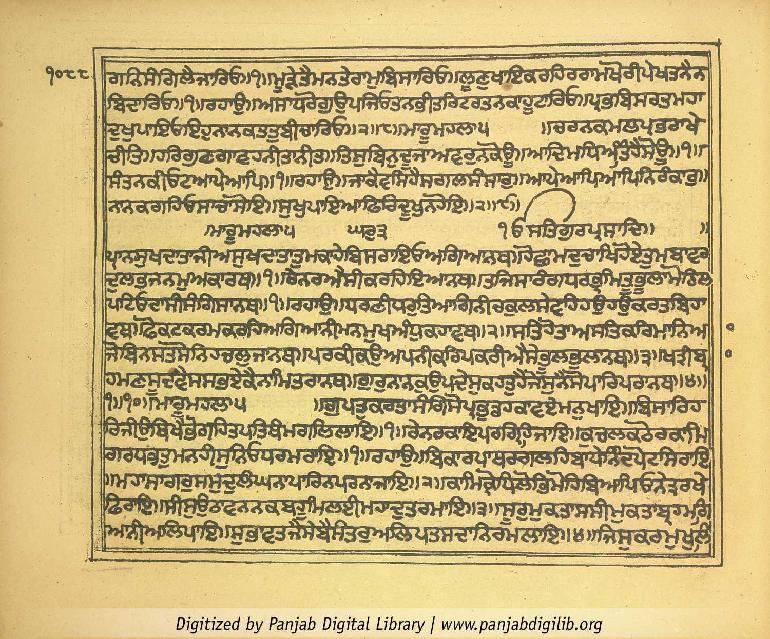 ੧੦੮੮
ਗਨਿਸੰਗਿਲੈਜਾਰਿਓ॥੧॥ਮੂੜੇਤੈਮਨਤੇਰਾਮੁਬਿਸਾਰਿਓ॥ਲੂਣੁਖਾਇਕਰਹਿਹਰਾਮਖੋਰੀਪੇਖਤਨੈਨ
ਬਿਦਾਰਿਓ॥੧॥ਰਹਾਉ॥ਅਸਾਧਰੋਗੁਉਪਜਿਓਤਨਭੀਤਰਿਟਰਤਨਕਾਹੂਟਾਰਿਓ॥ਪ੍ਰਭਬਿਸਰਤਮਹਾ
ਦੁਖੁਪਾਇਓਇਹੁਨਾਨਕਤਤੁਬੀਚਾਰਿਓ॥੨॥੮॥ਮਾਰੂਮਹਲਾ੫ ॥ਚਰਨਕਮਲਪ੍ਰਭਰਾਖੇ
ਚੀਤਿ॥ਹਰਿਗੁਣਗਾਵਹਨੀਤਾਨੀਤ॥ਤਿਸੁਬਿਨੁਦੂਜਾਅਵਰੁਨਕੋਊ॥ਆਦਿਮਧਿਅੰਤਿਹੈਸੋਊ॥੧॥
ਸੰਤਨਕੀਓਟਆਪੇਆਪਿ॥੧॥ਰਹਾਉ॥ਜਾਕੈਵਸਿਹੈਸਗਲਸੰਸਾਰੁ॥ਆਪੇਆਪਿਆਪਿਨਿਰੰਕਾਰੁ॥
ਨਾਨਕਗਹਿਓਸਾਚਾਸੋਇ॥ਸੁਖੁਪਾਇਆਫਿਰਿਦੂਖੁਨਹੋਇ॥੨॥੯॥
ਮਾਰੂਮਹਲਾ੫ ਘਰੁ੩ ੴਸਤਿਗੁਰਪ੍ਰਸਾਦਿ॥ ॥
ਪ੍ਰਾਨਸੁਖਦਾਤਾਜੀਅਸੁਖਦਾਤਾਤੁਮਕਾਹੇਬਿਸਾਰਿਓਅਗਿਆਨਥ॥ਹੋਛਾਮਦੁਚਾਖਿਹੋਏਤੁਮਬਾਵਰ
ਦੁਲਭਜਨਮੁਅਕਾਰਥ॥੧॥ਰੇਨਰਐਸੀਕਰਹਿਇਆਨਥ॥ਤਜਿਸਾਰੰਗਧਰਭ੍ਰਮਿਤੂਭੂਲਾਮੋਹਿਲ
ਪਟਿਓਦਾਸੀਸੰਗਿਸਾਨਥ॥੧॥ਰਹਾਉ॥ਧਰਣੀਧਰੁਤਿਆਗਿਨੀਚਕੁਲਸੇਵਹਿਹਉਹਉਕਰਤਬਿਹਾ
ਵਥ॥ਫੋਕਟਕਰਮਕਰਹਿਅਗਿਆਨੀਮਨਮੁਖਿਅੰਧਕਹਾਵਥ॥੨॥ਸਤਿਹੋਤਾਅਸਤਿਕਰਿਮਾਨਿਆ
ਜੋਬਿਨਸਤਸੋਨਿਹਚਲੁਜਾਨਥ॥ਪਰਕੀਕਉਅਪਨੀਕਰਿਪਕਰੀਐਸੇਭੂਲਭੁਲਾਨਥ॥੩॥ਖਤ੍ਰੀਬ੍ਰਾ
ਹਮਣਸੂਦਵੈਸਸਭਏਕੈਨਾਮਿਤਰਾਨਥ॥ਗੁਰੁਨਾਨਕੁਉਪਦੇਸੁਕਹਤੁਹੈਜੋਸੁਨੈਸੋਪਾਰਿਪਰਾਨਥ॥੪॥
੧॥੧੦॥ਮਾਰੂਮਹਲਾ੫ ॥ਗੁਪਤੁਕਰਤਾਸੰਗਿਸੋਪ੍ਰਭੁਡਹਕਾਵਏਮਨੁਖਾਇ॥ਬਿਸਾਰਿਹ
ਰਿਜੀਉਬਿਖੈਭੋਗਹਿਤਪਤਥੰਮਗਲਿਲਾਇ॥੧॥ਰੇਨਰਕਾਇਪਰਗ੍ਰਿਹਿਜਾਇ॥ਕੁਚਲਕਠੋਰਕਾਮਿ
ਗਰਧਭਤੁਮਨਹੀਸੁਨਿਓਧਰਮਰਾਇ॥੧॥ਰਹਾਉ॥ਬਿਕਾਰਪਾਥਰਗਲਹਿਬਾਧੇਨਿੰਦਪੋਟਸਿਰਾਇ
॥ਮਹਾਸਾਗਰੁਸਮੁਦੁਲੰਘਨਾਪਾਰਿਨਪਰਨਾਜਾਇ॥੨॥ਕਾਮਿਕ੍ਰੋਧਿਲੋਭਿਮੋਹਿਬਿਆਪਿਓਨੇਤ੍ਰਰਖੇ
ਫਿਰਾਇ॥ਸੀਸੁਉਠਾਵਨਨਕਬਹੂਮਿਲਈਮਹਾਦੁਤਰਮਾਇ॥੩॥ਸੂਰੁਮੁਕਤਾਸਸੀਮੁਕਤਾਬ੍ਰਹਮਗਿ
ਆਨੀਅਲਿਪਾਇ॥ਸੁਭਾਵਤਜੈਸੇਬੈਸੰਤਰੁਅਲਿਪਤਸਦਾਨਿਰਮਲਾਇ॥੪॥ਜਿਸੁਕਰਮੁਖੁਲਿ
Digitized by Panjab Digital Library | www.panjabdigilib.org